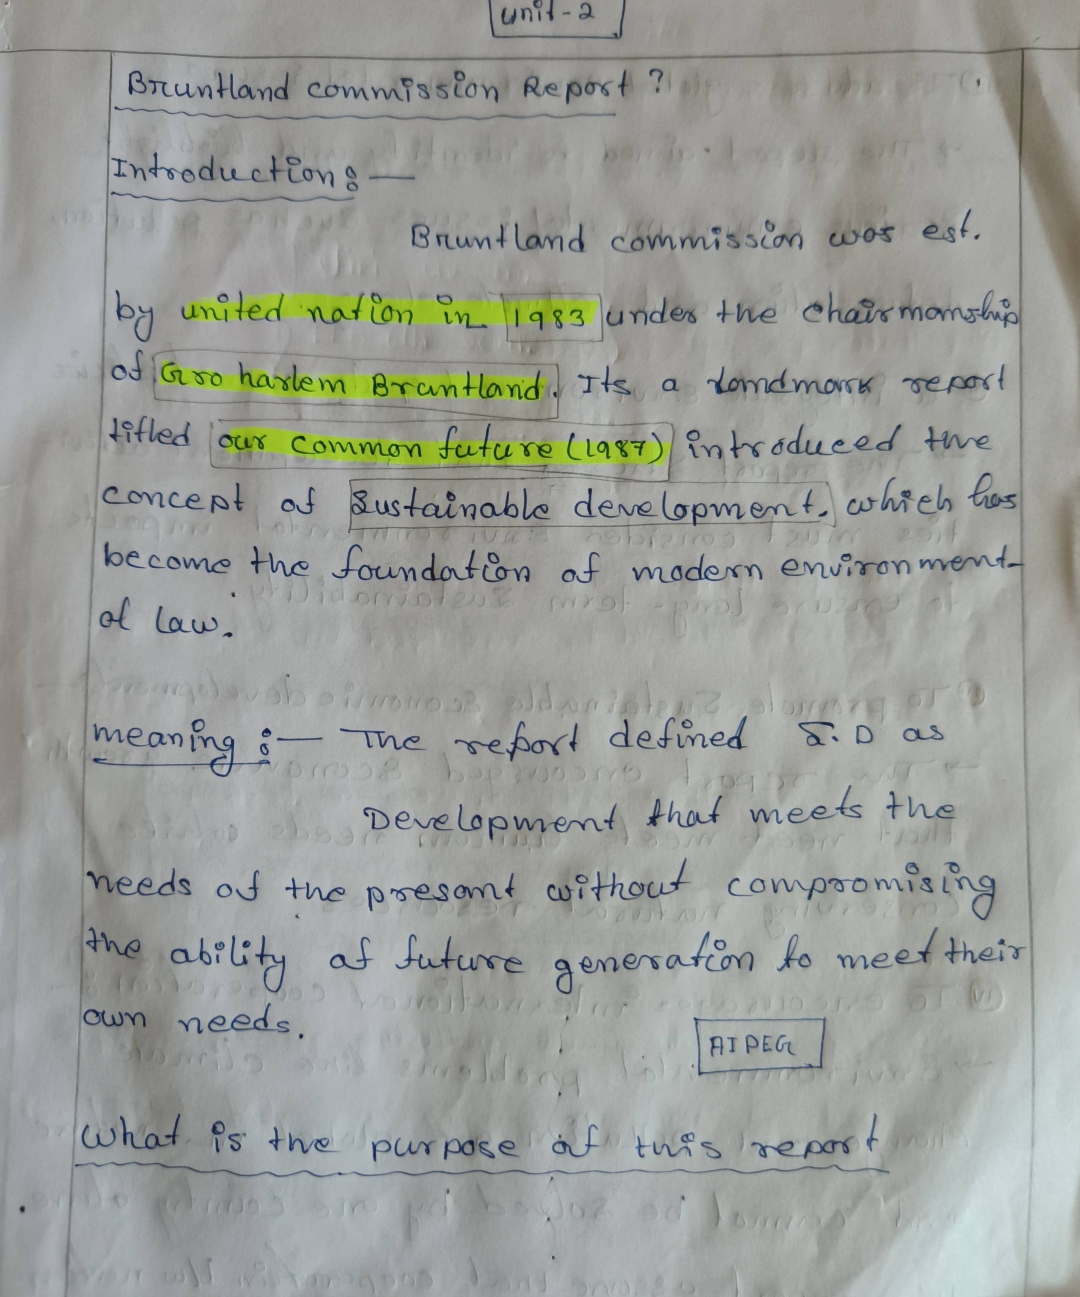 unit-2
Bruntland commission Report ?
Introduction :—
Bruntland commission was est.
by united nation in 1983 under the chairmanship
of Gro harlem Bruntland. Its a landmark report
titled our common future (1987) introduced the
concept of Sustainable development. which has
become the foundation of modern environment-
al law.
meaning :— The report defined S.D as
Development that meets the
needs of the present without compromising
the ability of future generation to meet their
own needs.
AIPEG
What is the purpose of this report